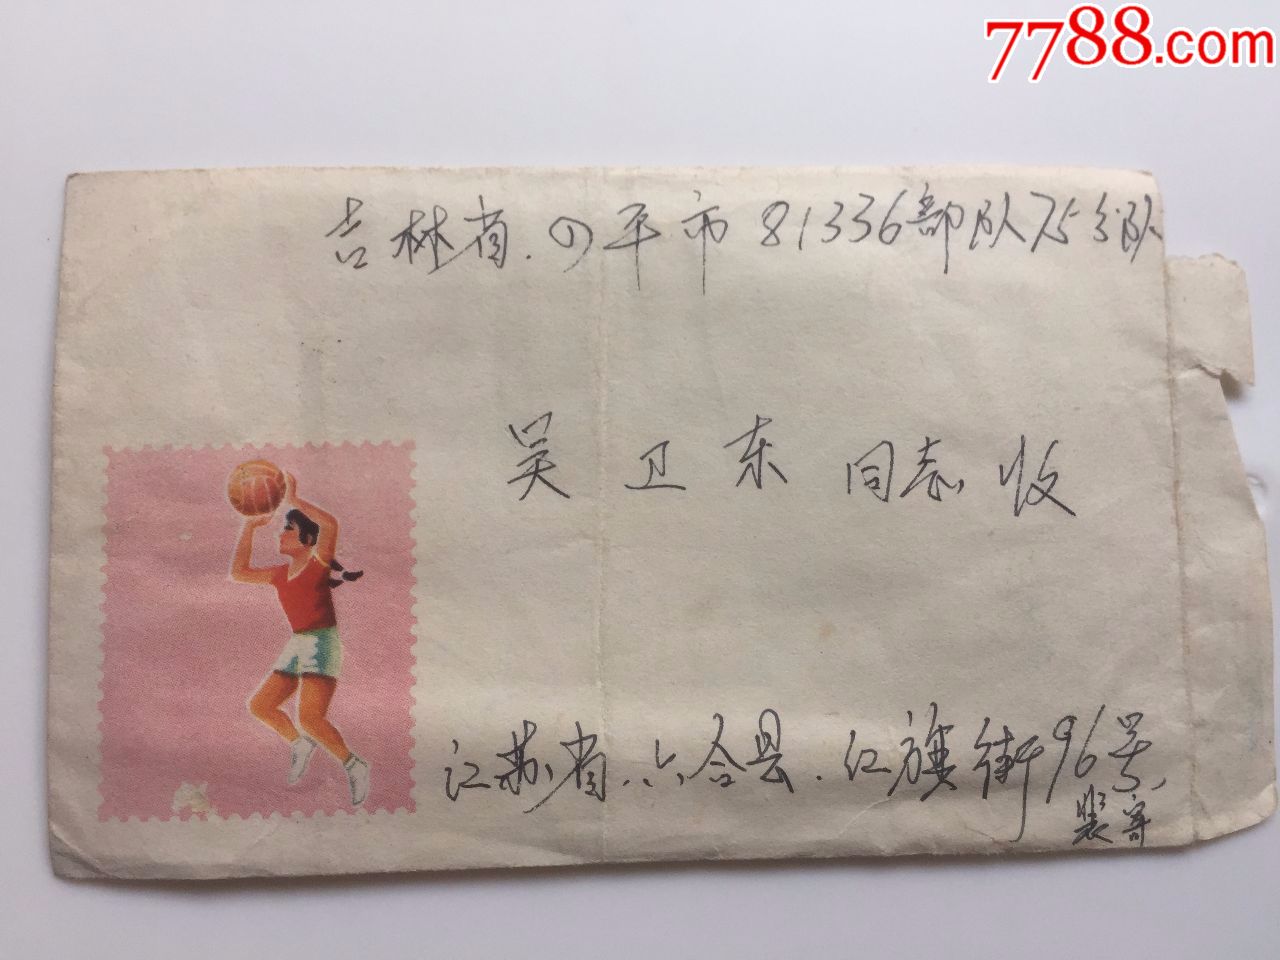 7788.com
吉林省.四平市81336部队75分队
吴卫东同志收
江苏省.六合县.红旗街96号
裴寄